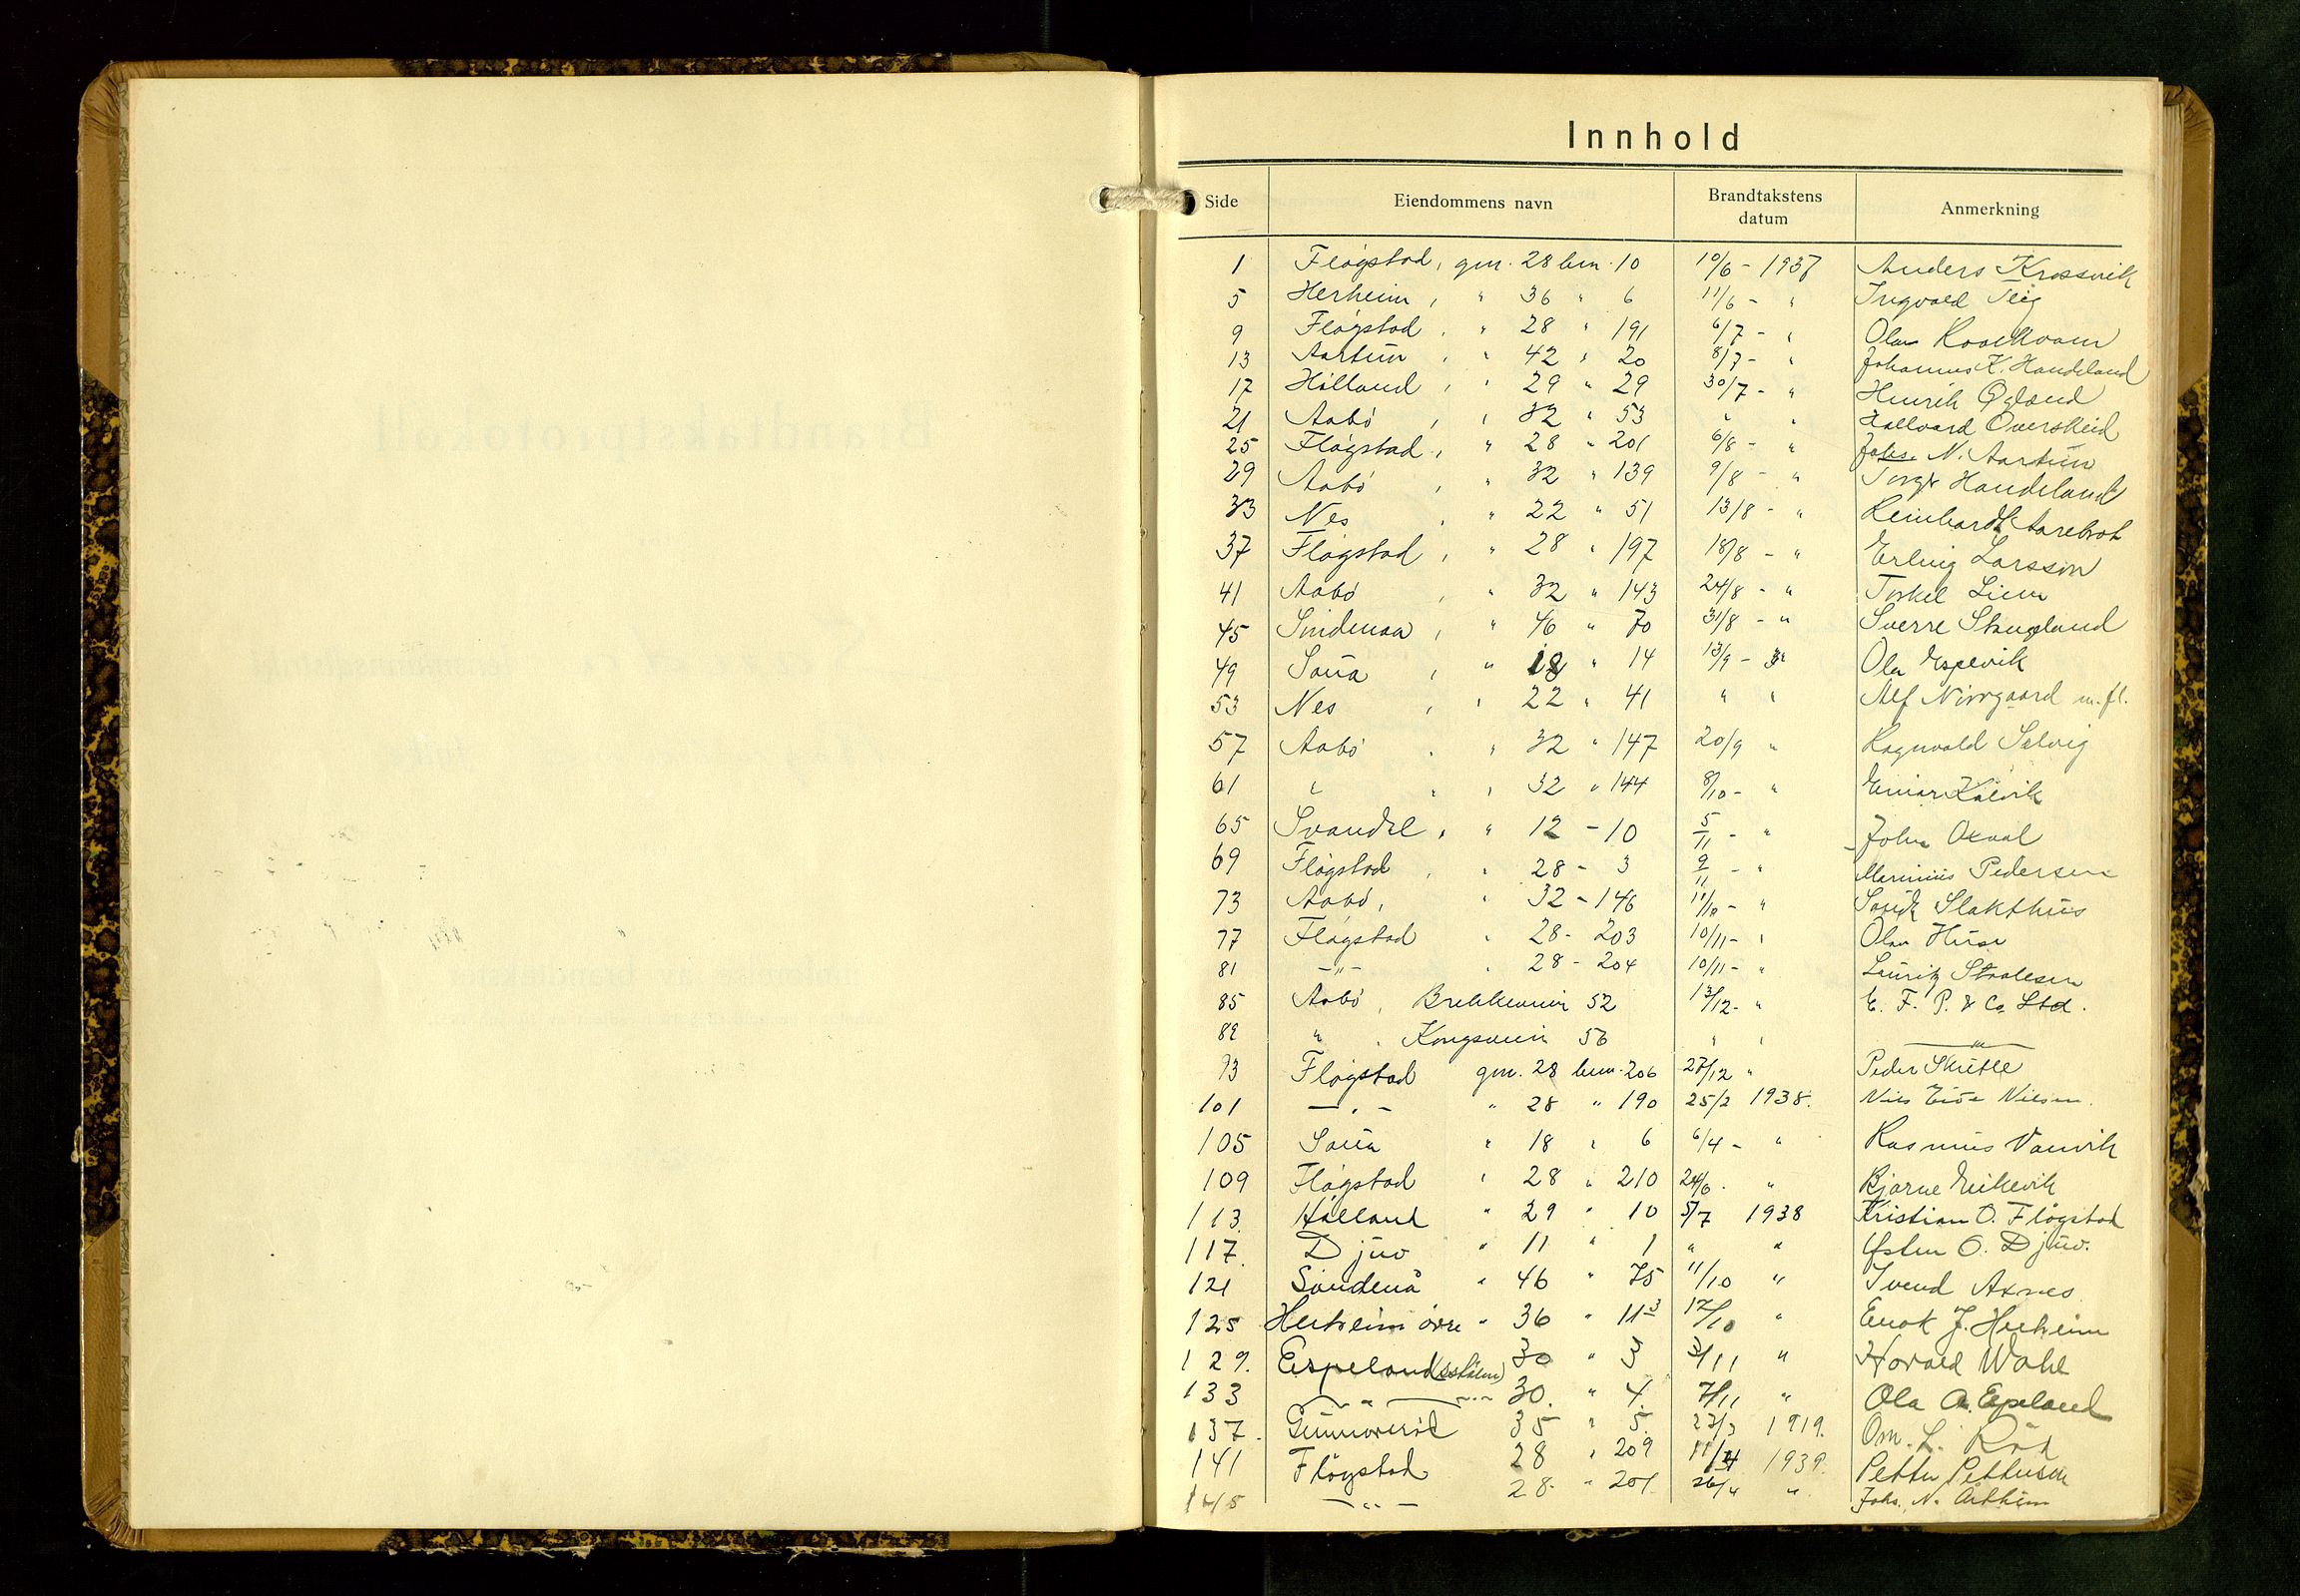 Innhold
Side Eiendommens navn Brandtakstens datum Anmerkning
1 Fløgstad, gnr. 28 bnr. 10 10/6 - 1937 Anders Krossvik
5 Herheim, " 36 " 6 11/6 - " Ingvald Teig
9 Fløgstad, " 28 " 191 6/7 - " Olav
13 Aartun, " 42 " 20 8/7 - " Johannes K. Handeland
17 Hålland, " 29 " 29 30/7 - " Henrik Øgland
21 Aabø, " 32 " 53 " " Hallvard Overskeid
25 Fløgstad, " 28 " 201 6/8 - " Johs. N. Aartun
29 Aabø, " 32 " 139 9/8 - " Torgr Handeland
33 Nes, " 22 " 51 13/8 - " Reinhardt Aarebrot
37 Fløgstad, " 28 " 197 18/8 - " Erling Larsson
41 Aabø, " 32 " 143 24/8 - " Torkel Liem
45 Søndenaa, " 46 " 70 31/8 - " Sverre Stangeland
49 Saua, " 18 " 14 13/9 - Ola Espevik
53 Nes, " 22 " 41 " " Alf m. fl.
57 Aabø, " 32 " 147 20/9 " Ragnvald Selvig
61 " " 32 " 144 8/10 - " Einar Kålvik
65 Svandal, " 12 - 10 5/11 - " John Oxval
69 Fløgstad, " 28 - 3 9/11 - " Marinius Pedersen
73 Aabø, " 32 - 146 11/10 - " Sauda Slakthus
77 Fløgstad " 28 - 203 10/11 - " Olav Huse
81 -"- " 28 - 204 10/11 - " Lauritz Staalesen
85 Aabø, 52 13/12 - " E. F. P. & Co Ltd.
89 " . 56 " " "
93 Fløgstad gnr. 28 bnr. 206 27/12 " Peder Skutle
101 -"- " 28 " 190 25/2 1938. Nils Eide Nilsen.
105 Saua " 18 " 6 6/4 - " Rasmus Vanvik
109 Fløgstad " 28 " 210 24/6. " Bjarne Eikevik
113. Hålland " 29 " 10 5/7 1938 Kristian O. Fløgstad
117. Djuv " 11 " 1 " " Østen O. Djuv.
121 Søndenå " 46 " 75 11/10 " Svend Axnes
125 Herheim øvre " 36 " 11 3 17/10 " Enok J. Herheim
129. Espeland 30 " 3 3/11 " Harald Wahl
133 -"- 30. " 4. 7/11 " Ola A. Espeland
137. 35 " 5. 27/3 1919. Om. L.
141 Fløgstad 28 " 209 11/4 1939. Petter Pettersen
145 -"- 28. " 201 26/4 " Johs. N. Årthun